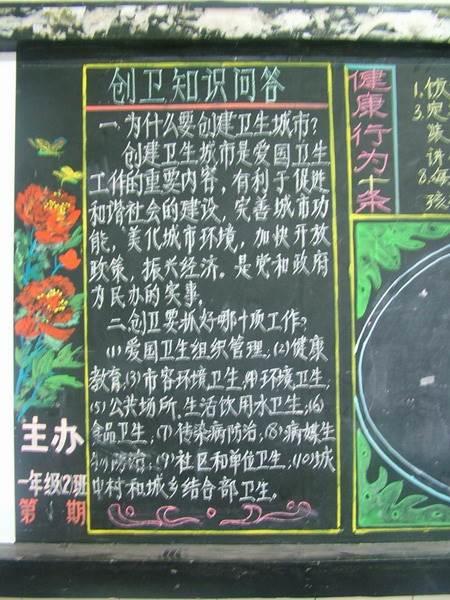 创卫知识问答
一、为什么要创建卫生城市？
创建卫生城市是爱国卫生
工作的重要内容，有利于促进
和谐社会的建设，完善城市功
能，美化城市环境，加快开放
政策，振兴经济。是党和政府
为民办的实事。
二、创卫要抓好哪十项工作？
(1)爱国卫生组织管理；(2)健康
教育；(3)市容环境卫生；(4)环境卫生；
(5)公共场所、生活饮用水卫生；(6)
食品卫生；(7)传染病防治；(8)病媒生
物防治；(9)社区和单位卫生；(10)城
中村和城乡结合部卫生。
主办
一年级(2)班
第 期
健康行为十条
1、饭
3、定
集
讲
8、每
孩